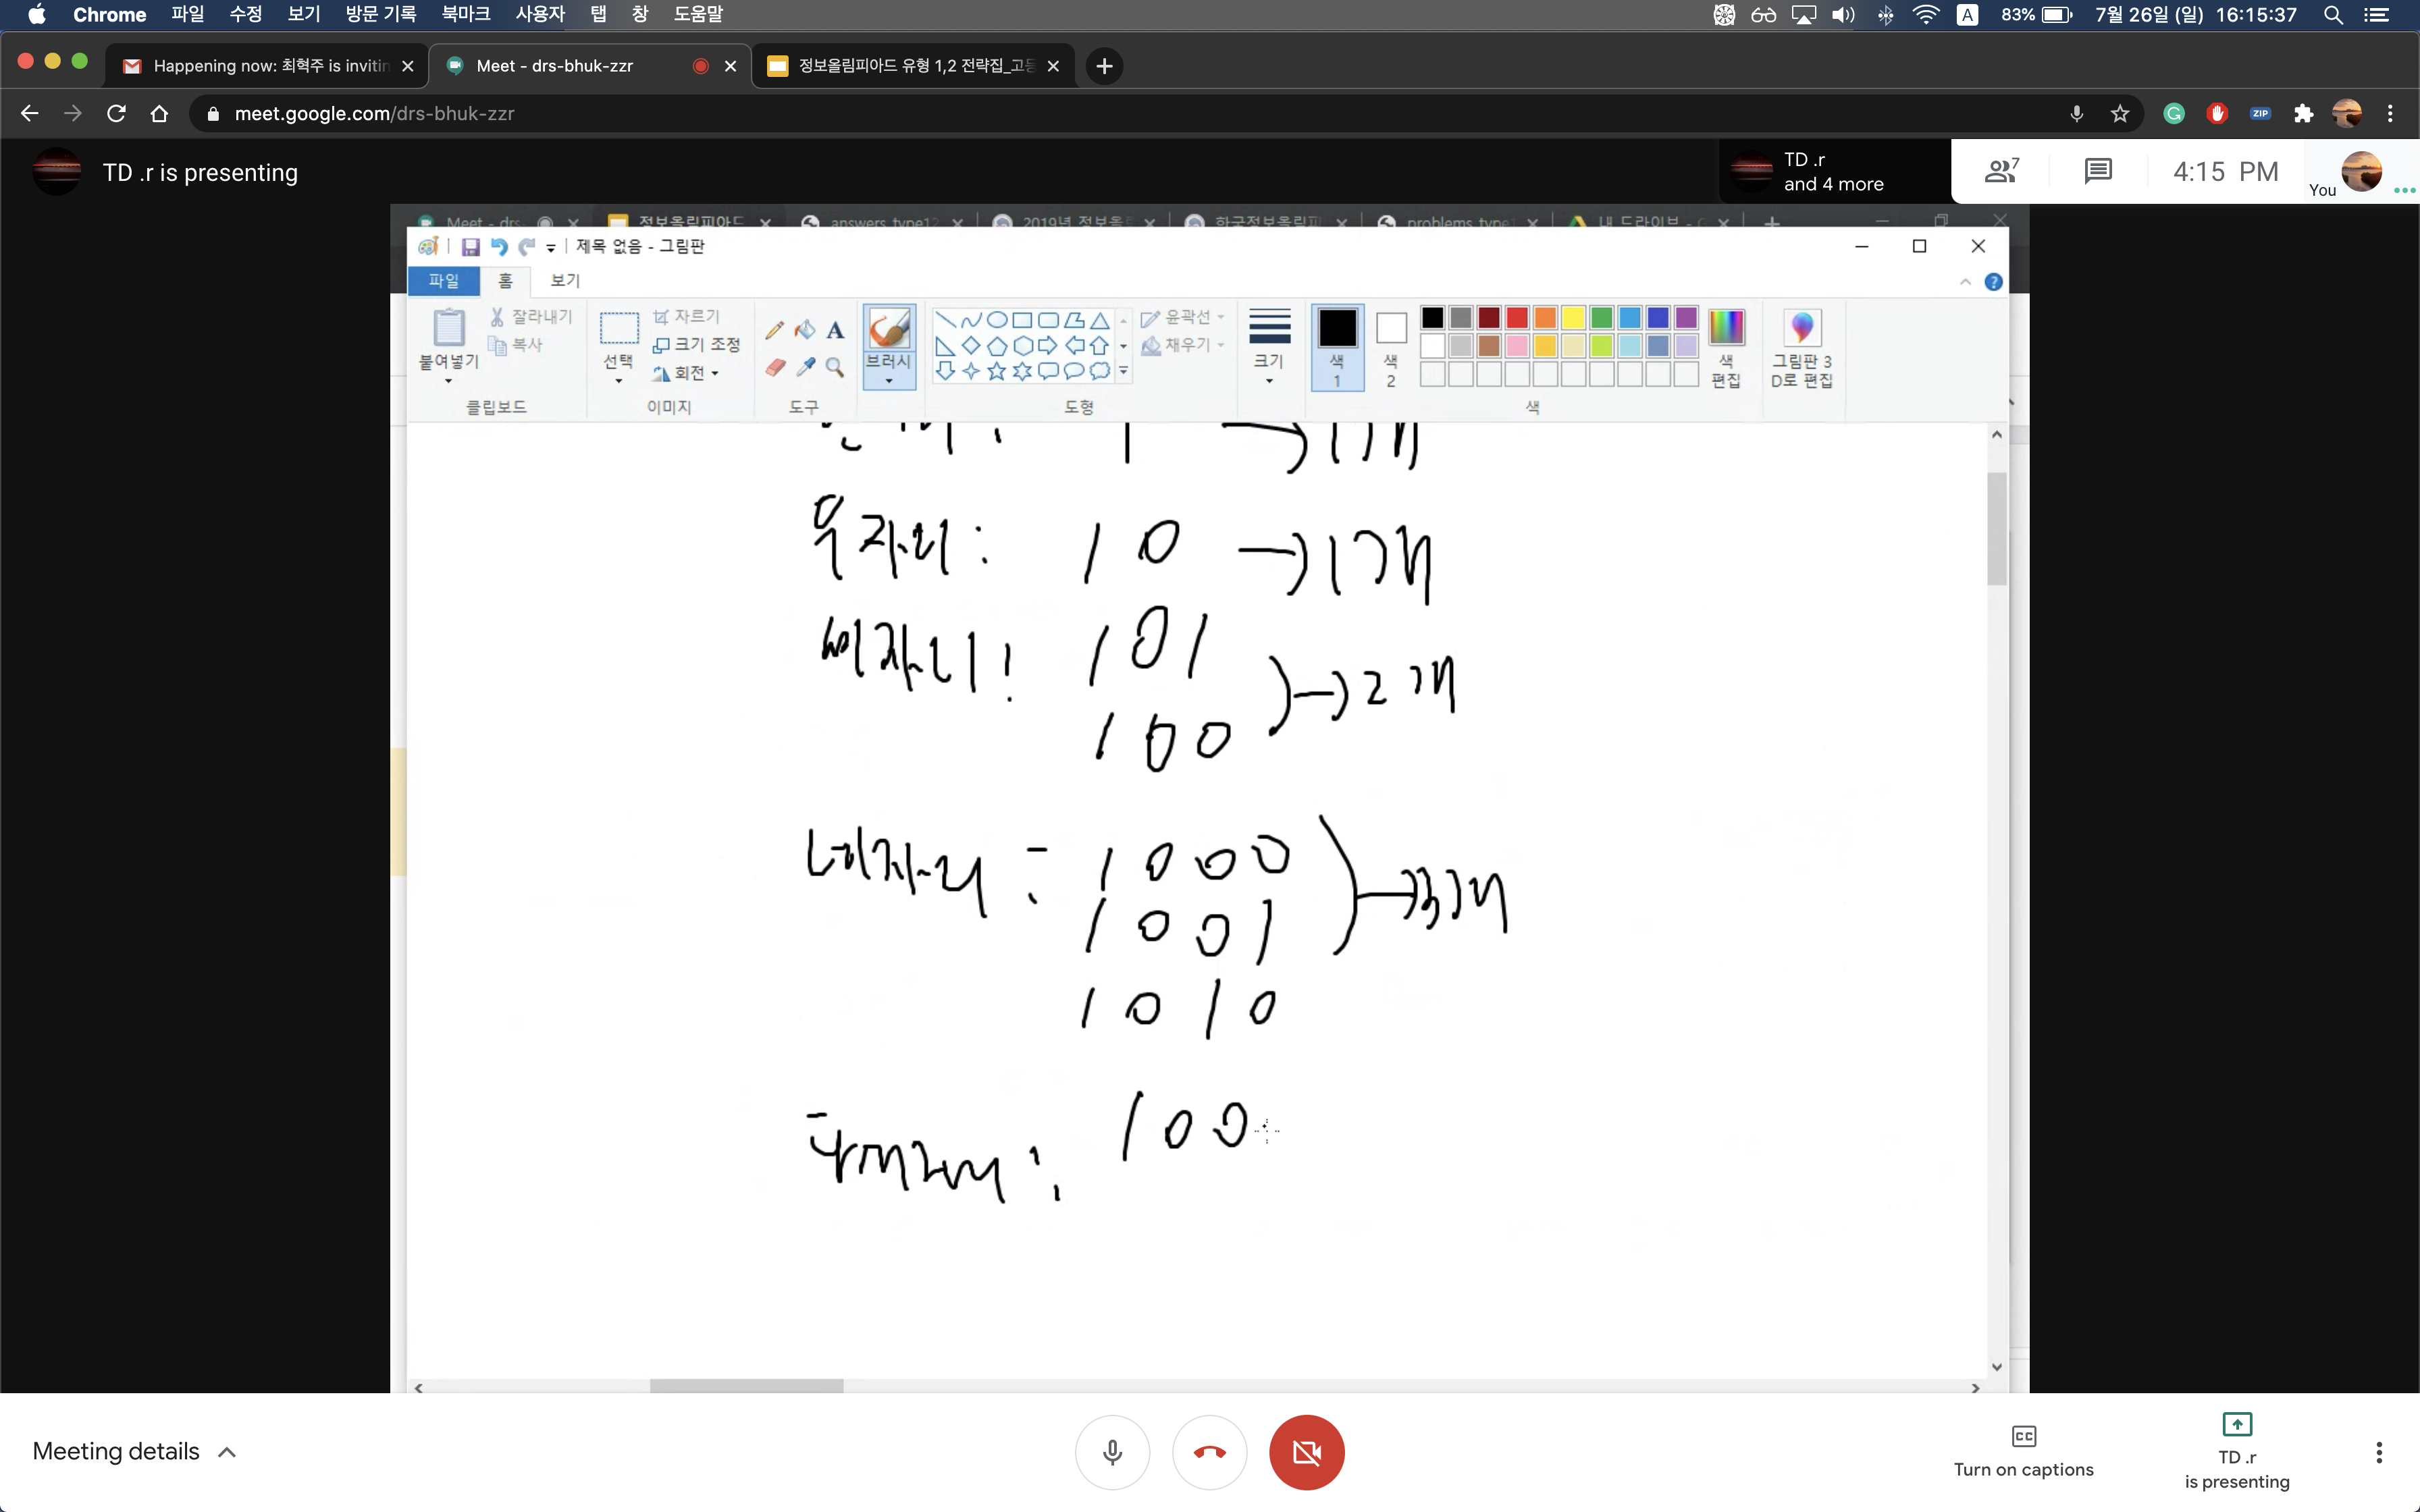 Chrome 파일 수정 보기 방문 기록 북마크 사용자 탭 창 도움말 A 83% 7월 26일 (일) 16:15:37
Happening now: 최혁주 is invitin Meet - drs-bhuk-zzr 정보올림피아드 유형 1,2 전략집_고등
meet.google.com/drs-bhuk-zzr ZIP
TD .r is presenting
TD .r
and 4 more
7
4:15 PM
You
Meet - drs- 정보올림피아드 answers_type12 2019년 정보올 한국정보올림피 problems_type 내 드라이브 - G
제목 없음 - 그림판
파일 홈 보기
붙여넣기
잘라내기
복사
클립보드
선택
자르기
크기 조정
회전
이미지
A
도구
브러시
윤곽선
채우기
도형
크기
색
1
색
2
색
편집
그림판 3
D로 편집
색
1 → 1개
두자리: 10 → 1개
세자리: 101
100
→ 2개
네자리: 1000
1001
1010
→ 3개
100
Meeting details
CC
Turn on captions
TD .r
is presenting